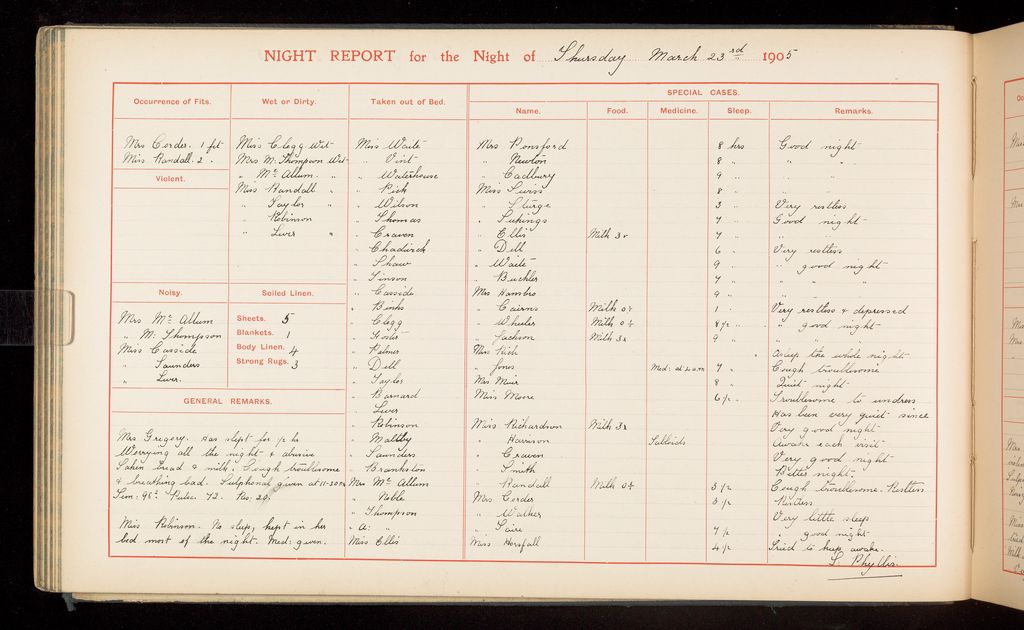 NIGHT REPORT for the Night of Thursday March 23rd 1905
Occurrence of Fits.
Mrs Corder. 1 fit
Miss Randall. 2 "
Violent.
Wet or Dirty.
Miss Clegg Wet
Mrs M. Thompson Wet
" Mc Allum. "
Miss Randall "
" Taylor "
" Robinson
" Liver "
Noisy.
Mrs Mc Allum
" M. Thompson
Miss Casside
" Saunders
" Liver.
Soiled Linen.
Sheets. 5
Blankets. 1
Body Linen. 4
Strong Rugs. 3
GENERAL REMARKS.
Mrs Gregory. Has slept for 1/2 hr
Worrying all the night & abusive
Taken bread & milk. Cough troublesome
& breathing bad. Sulphonal given at 11-30 P.M
Tem: 96 Pulse. 72. Res: 20,
Miss Robinson. No sleep, kept in her
bed most of the night. Med: given.
Taken out of Bed.
Miss Waite
" Vint
" Waterhouse
" Pick
" Wilson
" Thomas
" Craven
" Chadwick
" Shaw
" Tinson
" Casside
" Binks
" Clegg
" Foster
" Palmer
" Dell
" Taylor
" Barnard
" Liver
" Robinson
" Maltby
" Saunders
" Brankston
Mrs Mc Allum
" Noble
" Thompson
" A: "
Miss Ellis
SPECIAL CASES.
Name. Food. Medicine. Sleep. Remarks.
Mrs Ponsford 8 hrs Good night
" Newton 8 " " "
" Cadbury 9 " " "
Miss Swiss 8 " " "
" Sturge 3 " Very restless
" Jukings 7 " Good night
" Ellis Milk 3x 7 " "
" Dell 6 " Very restless
" Waite 9 " " good night
" Buchler 7 " " " "
Mrs Hambro 9 " " "
" Cairns Milk 0 1 " Very restless & depressed
" Wheeler Milk 0 8 1/2 " " good night
" Jackson Milk 3x 9 " " "
Miss Rich " Asleep the whole night
" Jones Med: at 2 a.m 7 " Cough troublesome
Mrs Muir 8 " Quiet night
Miss Moore 6 1/2 " Troublesome to undress
Has been very quiet since
Miss Richardson Milk 3x Very good night
" Harrison Awake each visit
" Craven Very good night
" Smith Better night
" Randall Milk 0 5 1/2 Cough troublesome. Restless
Mrs Corder 3 1/2 Restless
" Walker Very little sleep
" Saire 7 1/2 " good night
Miss Horsfall 4 1/2 Tried to keep awake.
S. Phyllis.